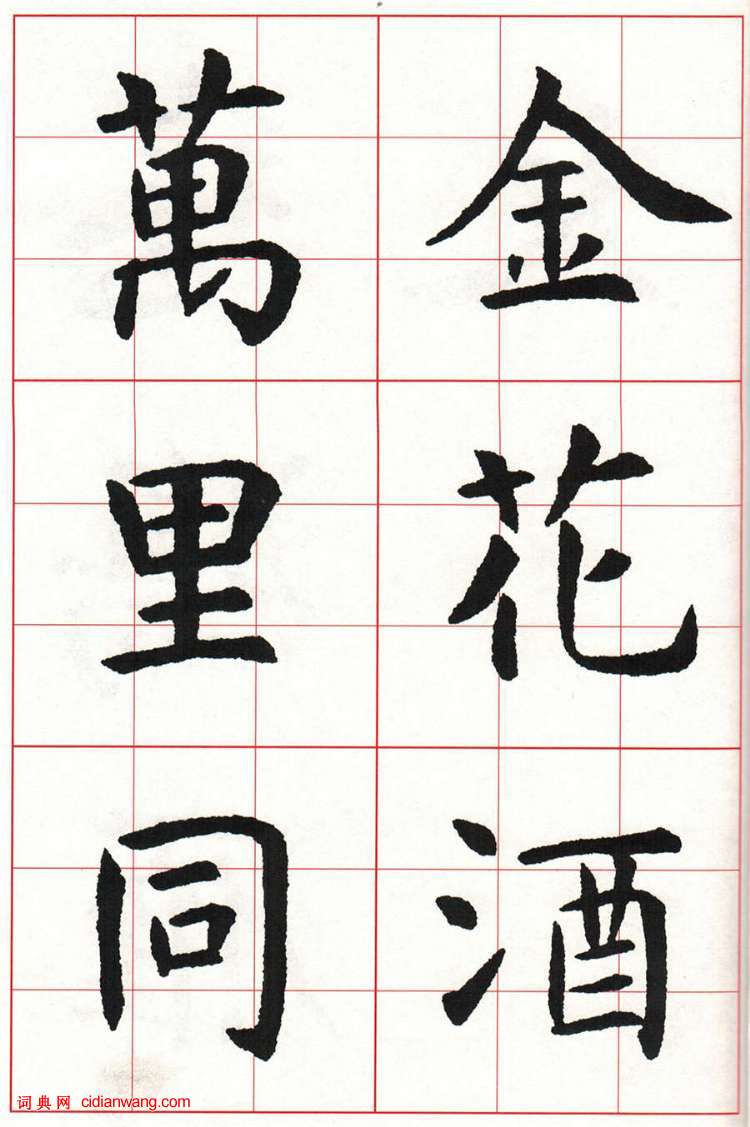 金花酒
萬里同
词典网 cidianwang.com